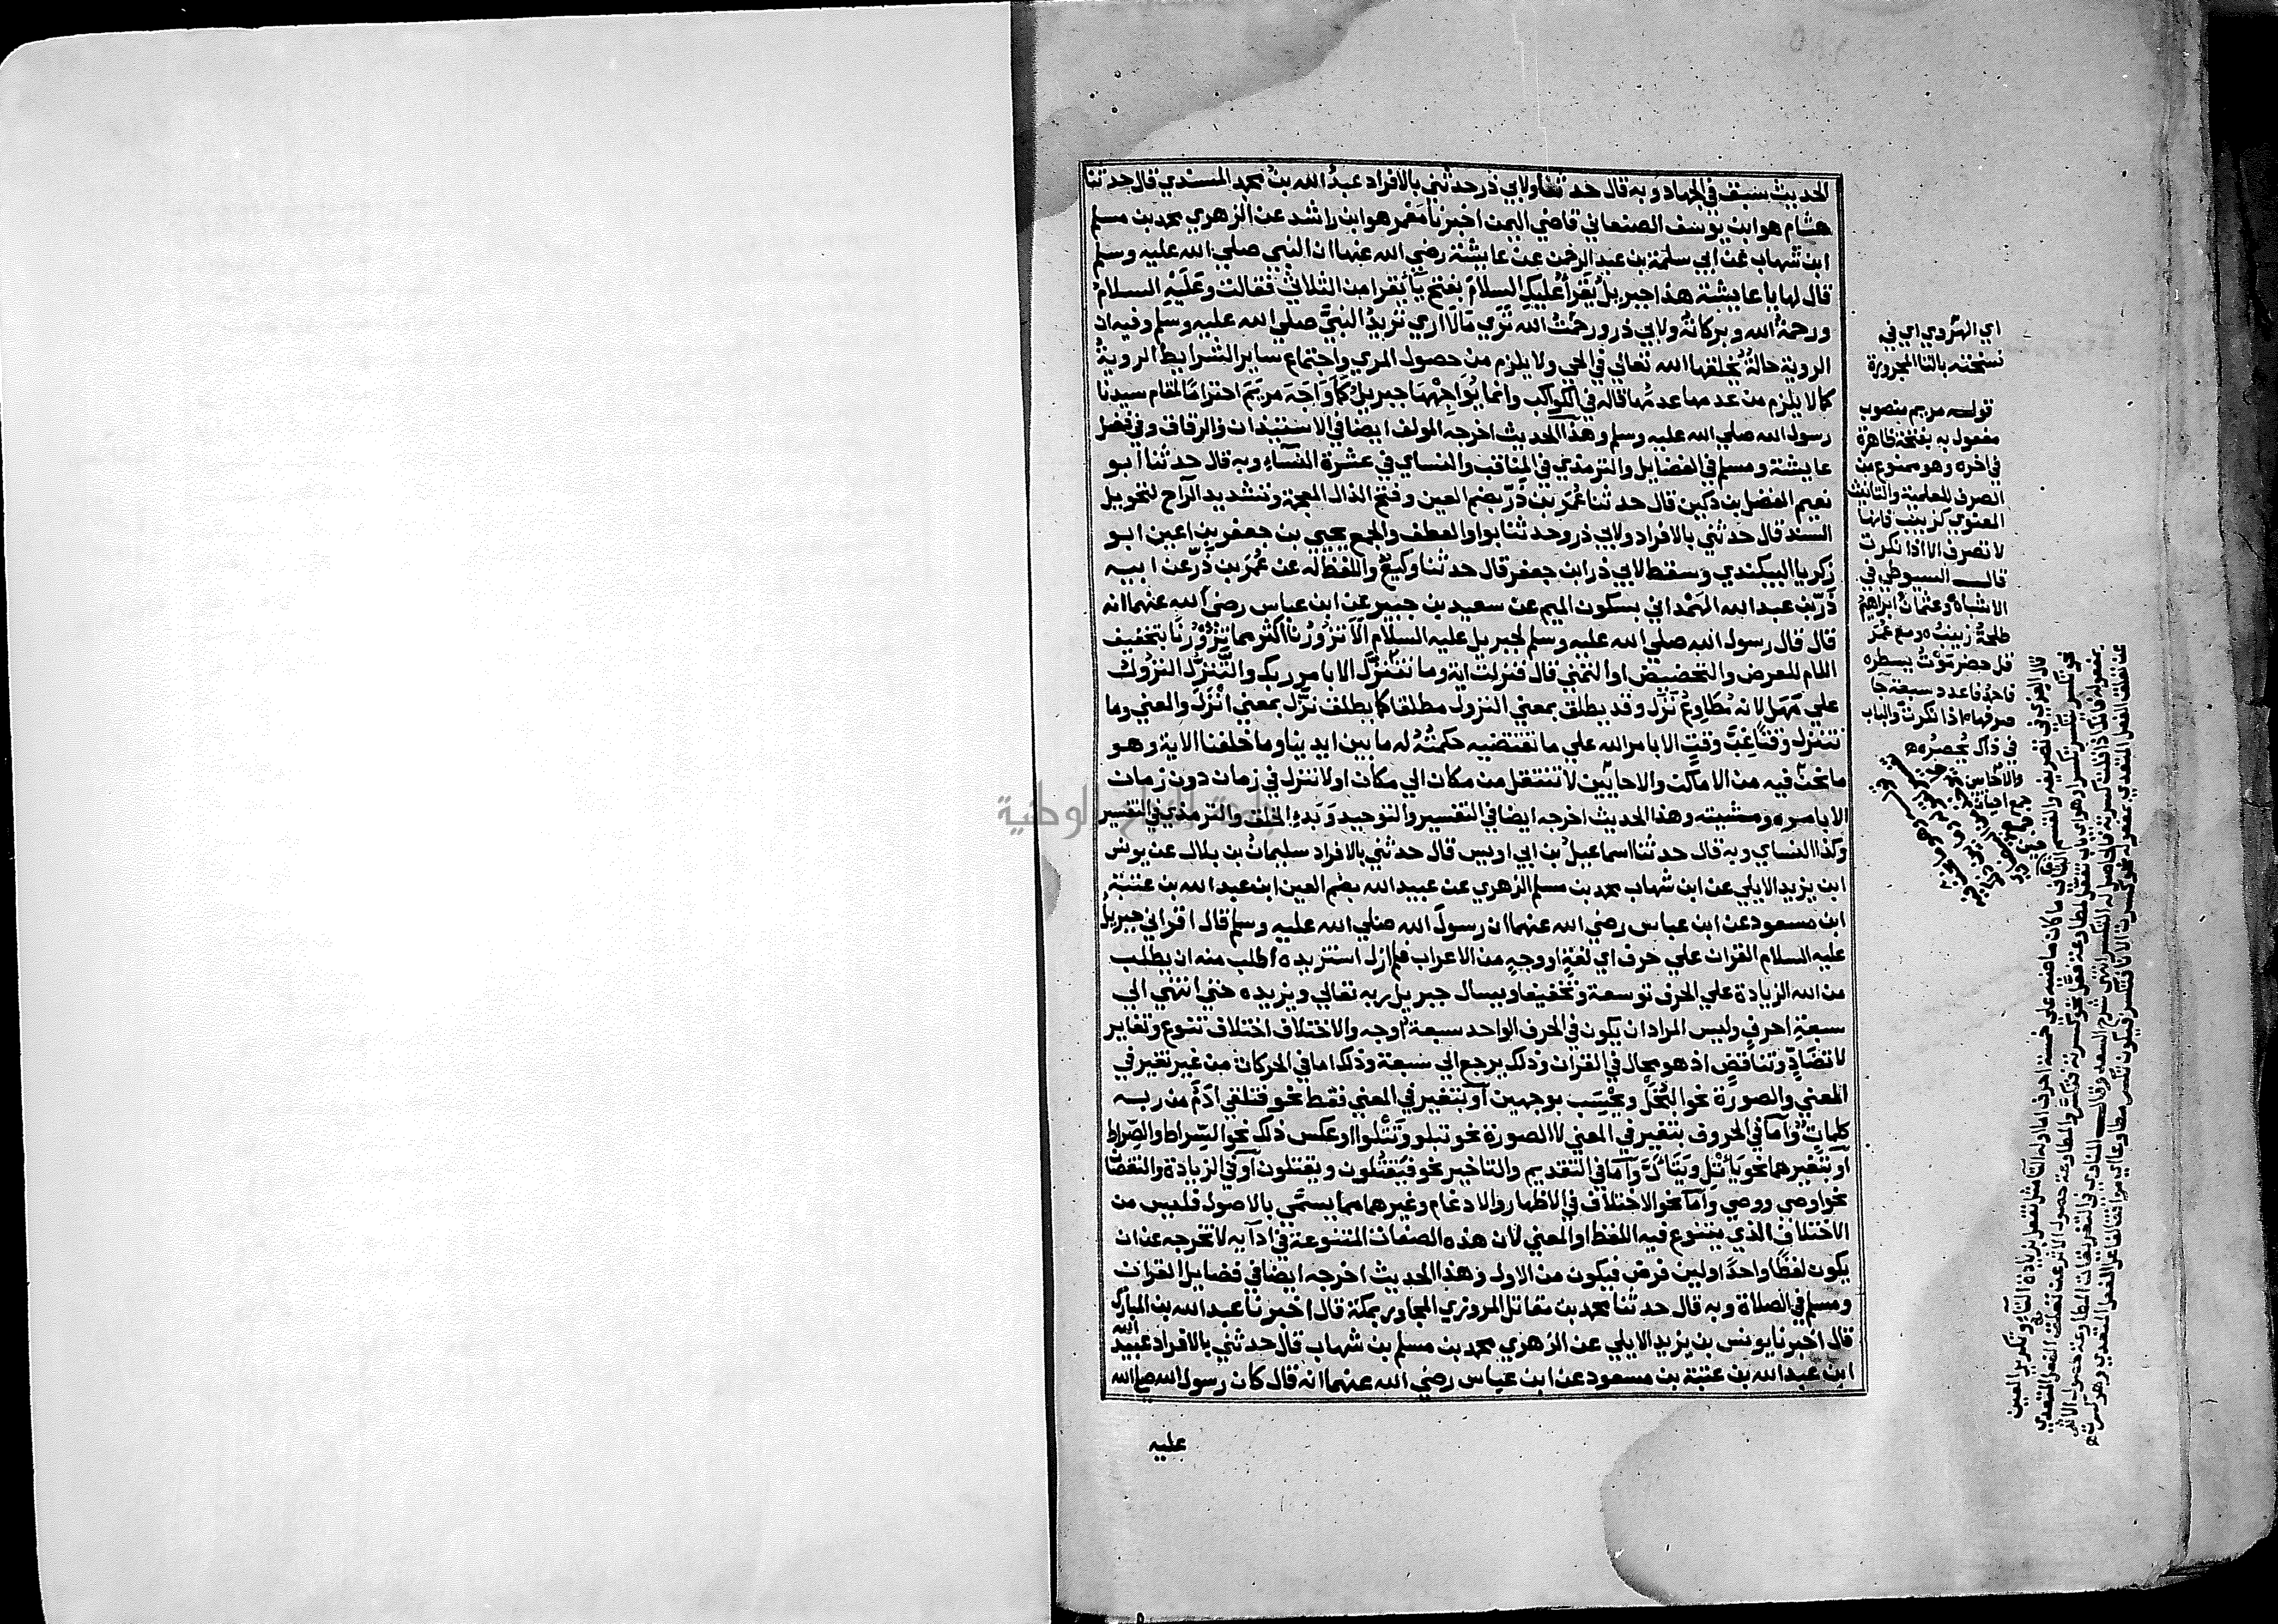 الحديث سبق في الجهاد وبه قال حدثنا ولابي ذر حدثني بالافراد عبدُ الله بنُ محمد المسندي قال حدثنا
هشام هو ابن يوسف الصنعاني قاضي اليمن اخبرنا مَعْمر هو ابن راشد عن الزهري محمد بن مسلم
ابن شهاب عن ابي سلمة بن عبد الرحمن عن عايشة رضي الله عنها ان النبي صلي الله عليه وسلم
قال لها يا عايشة هذا جبريلُ يَقْرَأُ عليكِ السلامَ بفتح يا يقرا من الثلاثي فقالت وعَلَيْهِ السلامُ
ورحمةُ الله وبركاتُه ولابي ذر ورحمتُ الله تَرَي مَالا اري تريدُ النبيَّ صلي الله عليه وسلم وفيه ان
الروية حالةٌ يخلقها الله تعالي في الحي ولا يلزم من حصول المري واجتماع ساير الشرايط الرويةُ
كما لا يلزم من عدمها عدمُها قاله في الكواكب وانما لم يُوَاجِهْها جبريلُ كما وَاجَهَ مريمَ احترامًا لمقام سيدنا
رسول الله صلي الله عليه وسلم وهذا الحديث اخرجه المولف ايضا في الاستيذان والرقاق وفي فضل
عايشة ومسلم في الفضايل والترمذي في المناقب والنساي في عشرة النساءِ وبه قال حدثنا ابو
نعيم الفضل بن دكين قال حدثنا عُمَرُ بن ذَرّ بضم العين وفتح الذال المعجمة وتشديد الرآ ح لتحويل
السند قال حدثني بالافراد ولابي ذر وحدثنا بواو العطف والجمع يحيي بن جعفر بن اعين ابو
زكريا البيكندي وسقط لابي ذر ابن جعفر قال حدثنا وكيعٌ واللفظ له عن عُمَرَ بن ذَرّ عن ابيه
ذَرّ بن عبد الله الهَمْداني بسكون الميم عن سعيد بن جبير عن ابن عباس رضي الله عنهما انه
قال قال رسول الله صلي الله عليه وسلم لجبريل عليه السلام اَلَا تزُورُنا اكثر مما تَزُوْرُنَا بتخفيف
اللام للعرض والتحضيض او التمني قال فنزلت اية وما نتنزَّل الا بامر ربك والتَّنزُّل النزول
علي مَهَلٍ لانه مُطَاوِعُ نَزَّل وقد يطلق بمعني النزول مطلقا كما يطلق نزَّل بمعني اَنْزَلَ والمعني وما
نتنزل وقتًا غِبَّ وقتٍ الا بامر الله علي ما تقتضيه حكمتُهُ له ما بين ايدينا وما خلفنا الاية وهو
ما نحن فيه من الاماكن والاحايين لا ننتقل من مكان الي مكان او لا ننزل في زمان دون زمان
الا بامره ومشيته وهذا الحديث اخرجه ايضا في التفسير والتوحيد وبَدءِ الخلق والترمذي في التفسير
وكذا النساي وبه قال حدثنا اسماعيلُ بن ابي اويس قال حدثني بالافراد سليمانُ بن بلال عن يونس
ابن يزيد الايلي عن ابن شهاب محمد بن مسلم الزهري عن عبيد الله بضم العين ابن عبد الله بن عتبة
ابن مسعود عن ابن عباس رضي الله عنهما ان رسولَ الله صلي الله عليه وسلم قال اقراني جبريل
عليه السلام القران علي حرف اي لغةٍ او وجهٍ من الاعراب فلم ازل استزيده اطلب منه ان يطلب
من الله الزيادة علي الحرف توسعة وتخفيفا ويسال جبريل ربه تعالي ويزيده حتي انتهي الي
سبعةِ احرفٍ وليس المراد ان يكون في الحرف الواحد سبعة اوجه والاختلاف اختلاف تنوع وتغاير
لا تضادٍّ وتناقضٍ اذ هو محال في القران وذلك يرجع الي سبعة وذلك اما في الحركات من غير تغير في
المعني والصورة نحو البُخْل ويحْسِب بوجهين او بتغير في المعني فقط نحو فتلقي ادَمُ من ربه
كلماتٌ واما في الحروف بتغير في المعني لا الصورة نحو تبلو وتَتْلوا او عكس ذلك نحو السِّراط والصِّراط
او بتغيرهما نحو يَاْتَلِ ويَتَاَلَّ واما في التقديم والتاخير نحو فيَقتُلون ويقتلون او في الزيادة والنقصا
نحو اوصي ووصي واما نحو الاختلاف في الاظهار والادغام وغيرهما مما يسمَّي بالاصول فليس من
الاختلاف الذي يتنوع فيه اللفظ او المعني لان هذه الصفات المتنوعة في ادآيه لا تخرجه عن ان
يكون لفظًا واحدًا ولين فرض فيكون من الاول وهذا الحديث اخرجه ايضا في فضايل القران
ومسلم في الصلاة وبه قال حدثنا محمد بن مقاتل المروزي المجاور بمكة قال اخبرنا عبد الله بن المبارك
قال اخبرنا يونس بن يزيد الايلي عن الزهري محمد بن مسلم بن شهاب قال حدثني بالافراد عبيد الله
ابن عبد الله بن عتبة بن مسعود عن ابن عباس رضي الله عنهما انه قال كان رسول الله صلي الله
عليه
اي الهروي اي في
نسخته بالتا المجرورة
قوله مريم منصوب
مفعول به بفتحة ظاهرة
في اخره وهو ممنوع من
الصرف للعلمية والتانيث
المعنوي كزينب فانها
لا تصرف الا اذا نكرت
قال السيوطي في
الاشباه وعثمان ابراهيم
طلحةُ زينبُ ومع عُمَر
قل حضر موتُ يسطره
فاحد فاعدد سبعة جا
صرفها اذا نكرت والباب
في ذاك يحصره
قال العزي في تصريفه والقسم الثاني ما كان ماضيه علي خمسة احرف اما اوله التا مثل تفعل بزيادة التآء وتكرير العين
جامعة النجاح الوطنية